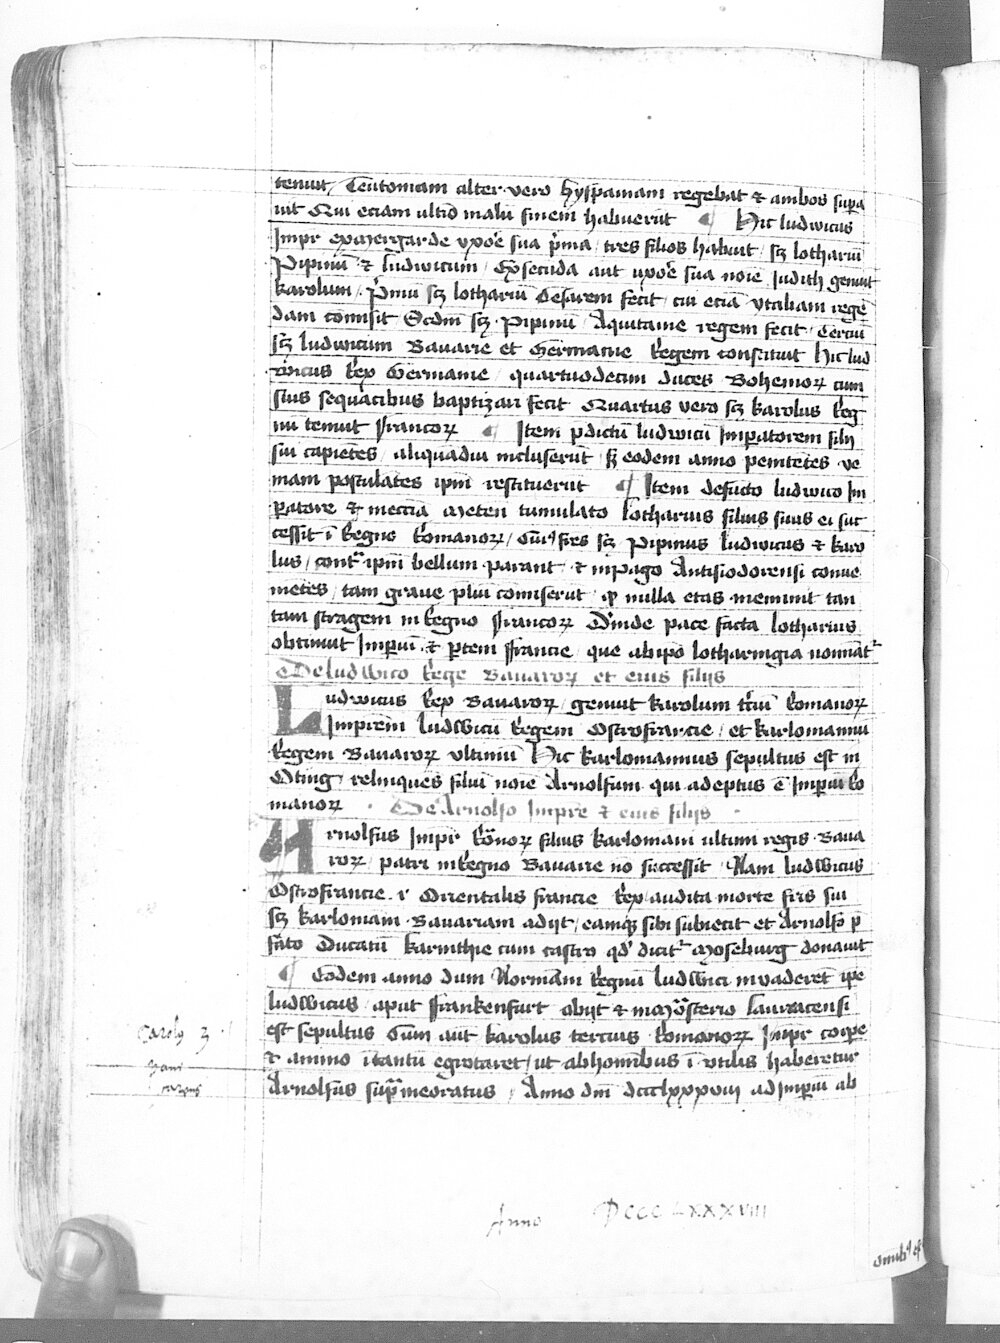 tenuit / Teutoniam alter vero hyspaniam regebat et ambos supa
uit Qui eciam ultiō malū finem habuerūt ¶ Hic ludwicus
Impr̄ ex Mergarde vxor̄e sua p̄ma / tres filios habuit / sꝫ lothariū
Pipinū et ludwicum / Ex secūda aūt uxor̄e sua noīe Judith genuit
karolum / P̄mū sꝫ lothariū Cesarem fecit / cui eciā ytaliam rege
dam cōmisit Scdm̄ sꝫ Pipinū / Aquitanie regem fecit / Terciū
sꝫ ludwicum Bauarie et Germanie Regem constituit Hic lud
wicus Rex Germanie / quartuodecim duces Bohemoꝝ cum
suis sequacibus baptizari fecit Quartus vero sꝫ karolus Reg
nū tenuit francoꝝ ¶ Item p̄dictū ludwicū Imperatorem filij
sui capiētes / aliquadiu incluserūt / sꝫ eodem anno penitētes ve
niam postulātes ip̄m restituerūt ¶ Item defūcto ludwico Im
peratore et in ecc̄ia Meten tumulato lotharius filius suus ei suc
cessit ī Regno Romanoꝝ / Cui fr̄es sꝫ Pipinus ludwicus et karo
lus / contr̄ ip̄m bellum parant et in pago Antisiodorensi conue
nietes / tam graue p̄liū cōmiserūt / ꝙ nulla etas meminit tan
tam stragem in Regno Francoꝝ Deinde pace facta lotharius
obtinuit Imperiū et p̄tem ffrancie / que ab ip̄o lotharingia nominat̄
De ludwico Rege Bauaroꝝ et eius filijs
Ludwicus Rex Bauaroꝝ / genuit karolum t̄ciū Romanoꝝ
Imprem̄ ludwicū Regem Ostrofrancie / et karlomannū
Regem Bauaroꝝ vltimū Hic karlomannus sepultus est in
Oting / relinques filiū noīe Arnolfum qui adeptus ē Imperiū Ro
manoꝝ . De Arnolfo Impre et eius filijs
Arnolfus Impr̄ Rōnoꝝ filius karlomani ultimi regis Baua
roꝝ / patri in Regno Bauarie nō successit Nam ludwicus
Ostrofrancie .i. Orientalis francie Rex / audita morte fr̄is sui
sꝫ karlomani Bauariam adijt / eamqꝫ sibi subiecit et Arnolfo p
fato Ducatū karinthie cum castro qd̄ dicit̄ Moseburg donauit
¶ Eodem anno dum Normāni Regnū ludwici inuaderēt ip̄e
ludwicus aput ffrankenfurt obijt et in Mōsterio lauracensi
est sepultus Cum aūt karolus tercius Romanoꝝ Impr̄ corpe
et animo ītantū egrotaret / ut ab hom̄ibus ī vtilis haberetur
Arnolfus sup̄ memoratus / Anno dn̄i dccclxxxviii ad Imperiū ab
Caroly 3
Anno DCCCLXXXVIII
omīb᷒